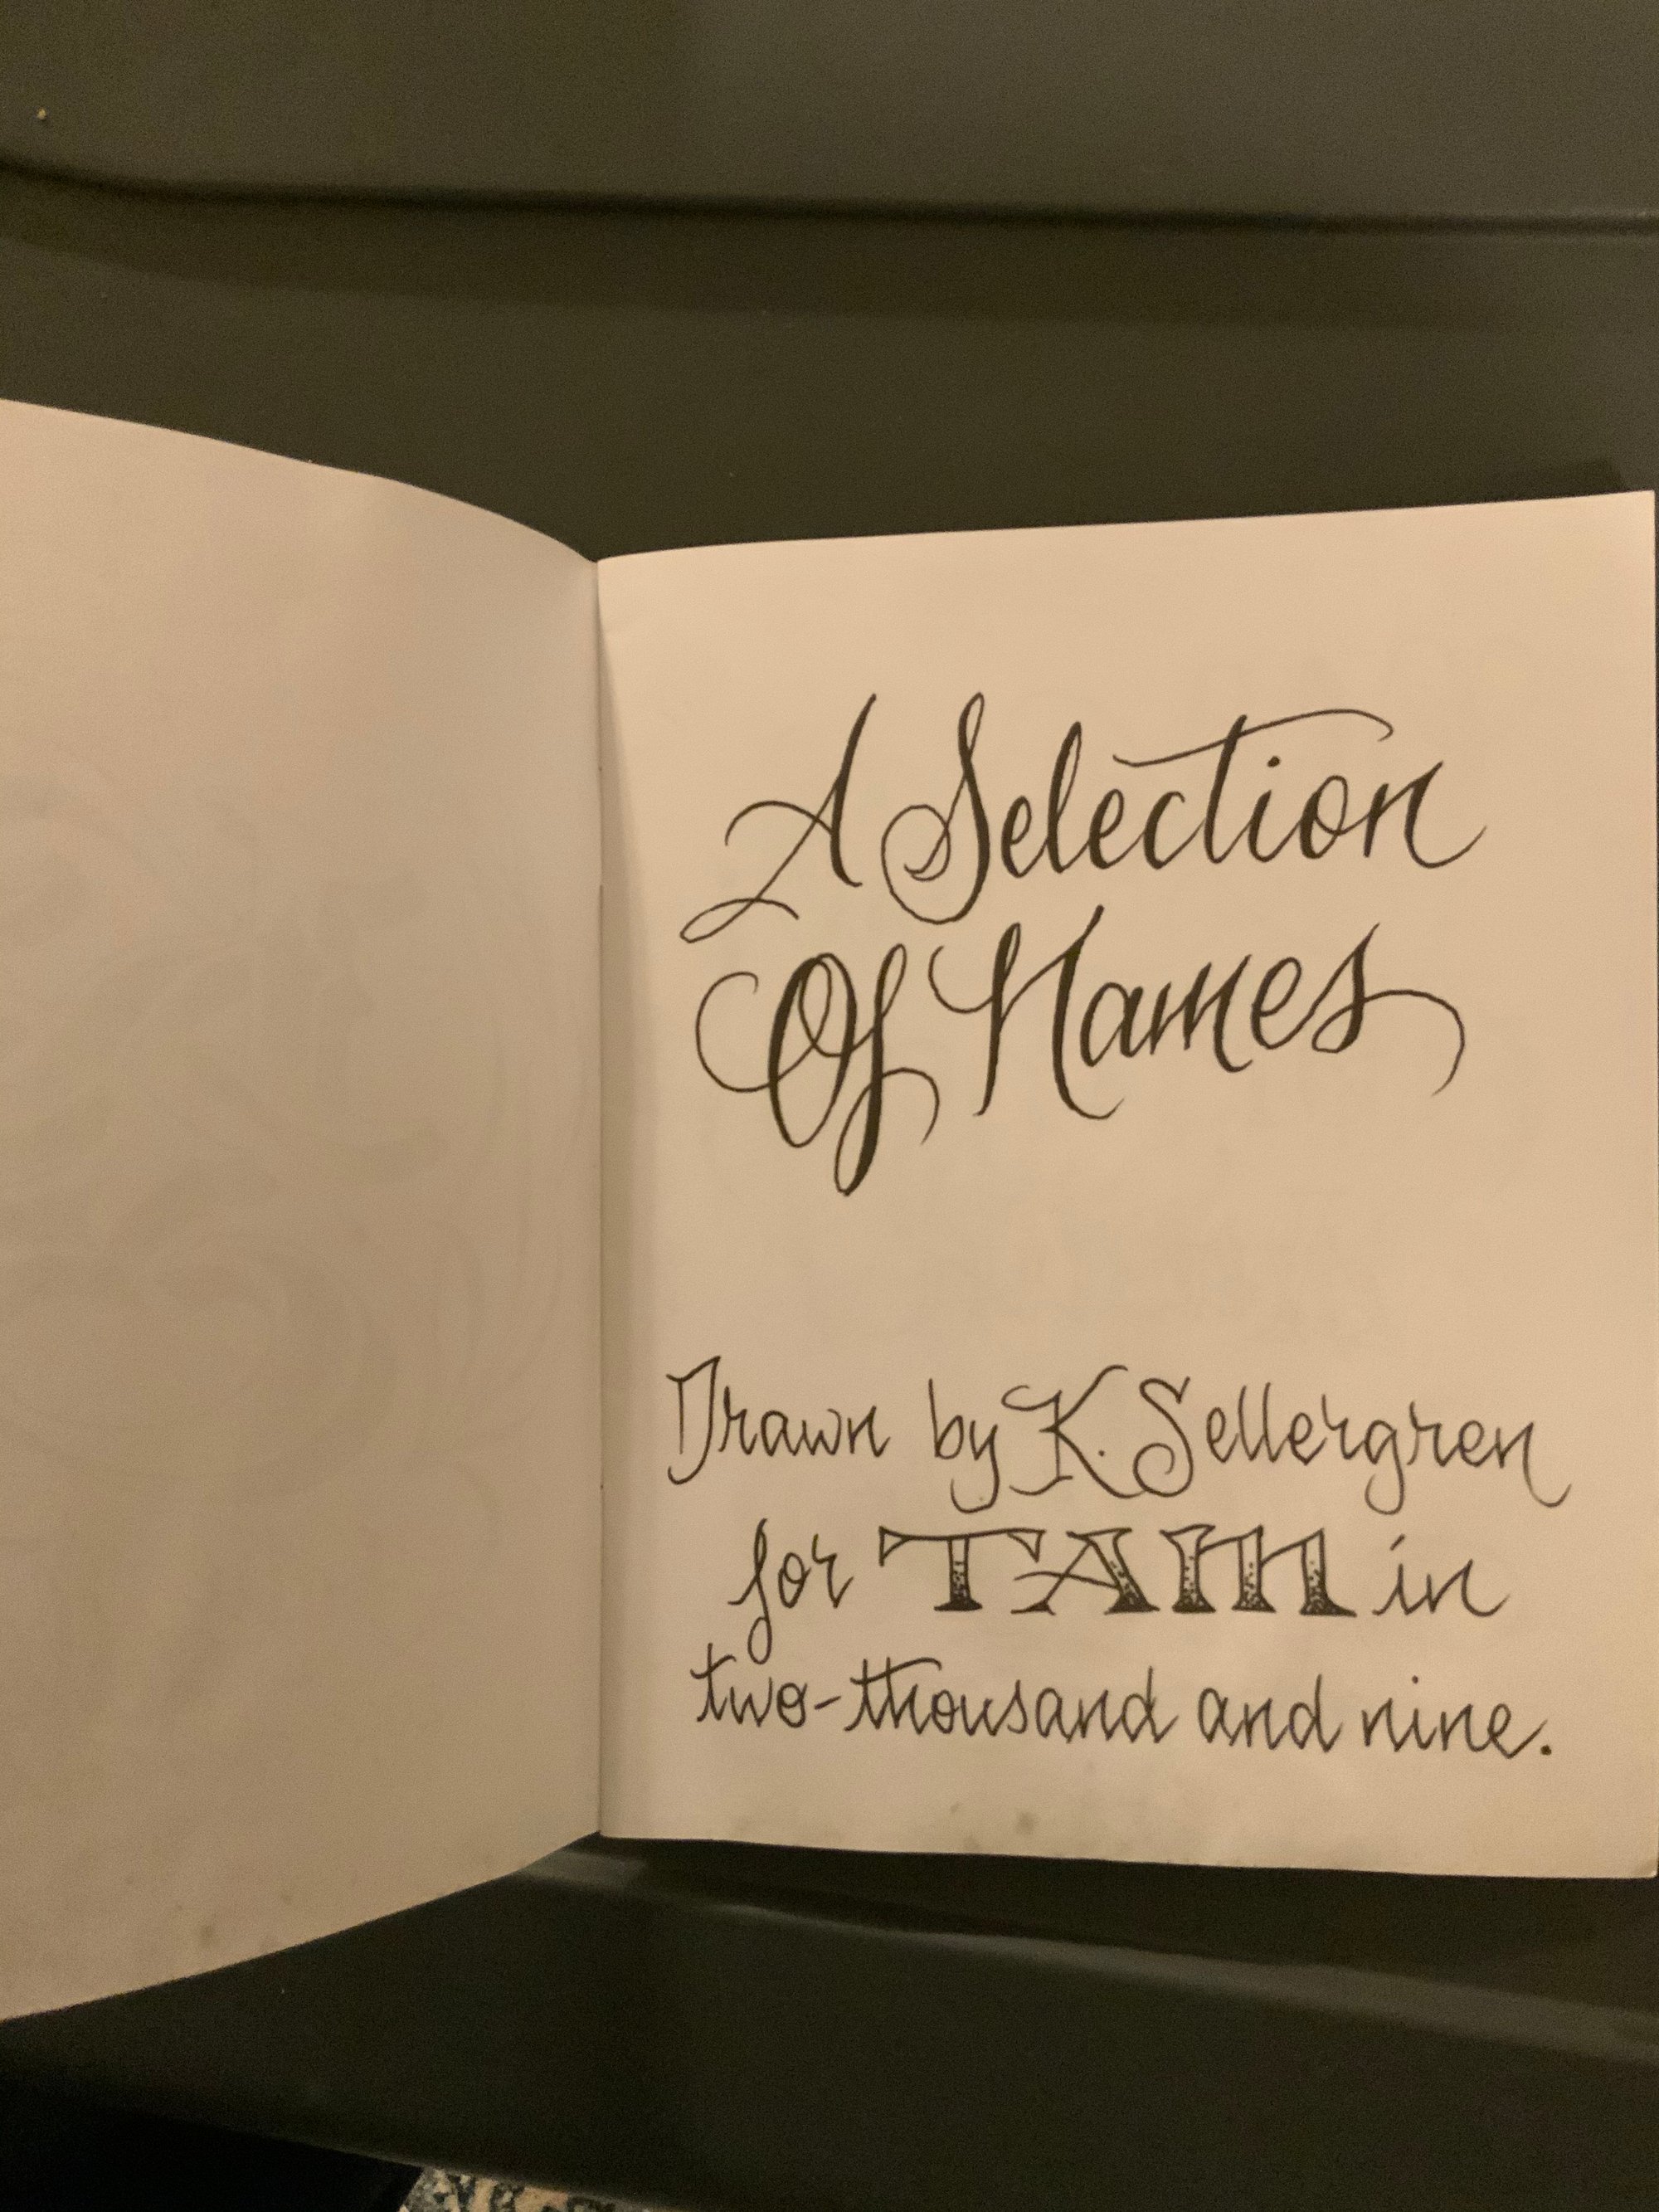 A Selection
Of Names
Drawn by K. Sellergren
for TAM in
two-thousand and nine.